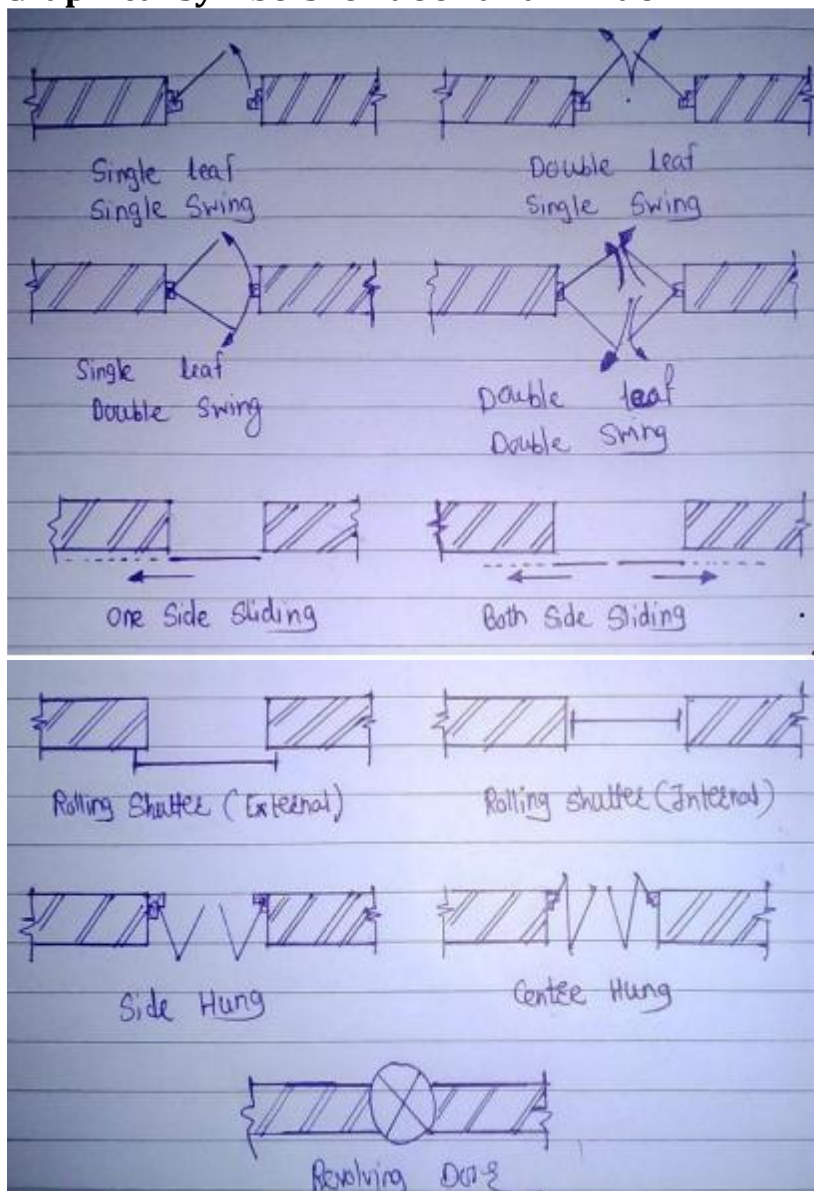 Single leaf
Single Swing
Double leaf
Single Swing
Single leaf
Double Swing
Double leaf
Double Swing
One Side Sliding
Both Side Sliding
Rolling Shutter (External)
Rolling Shutter (Internal)
Side Hung
Center Hung
Revolving Door